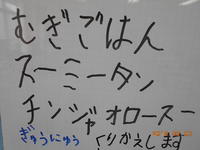 むぎごはん
スーミータン
チンジャオロースー
ぎゅうにゅう くりかえします